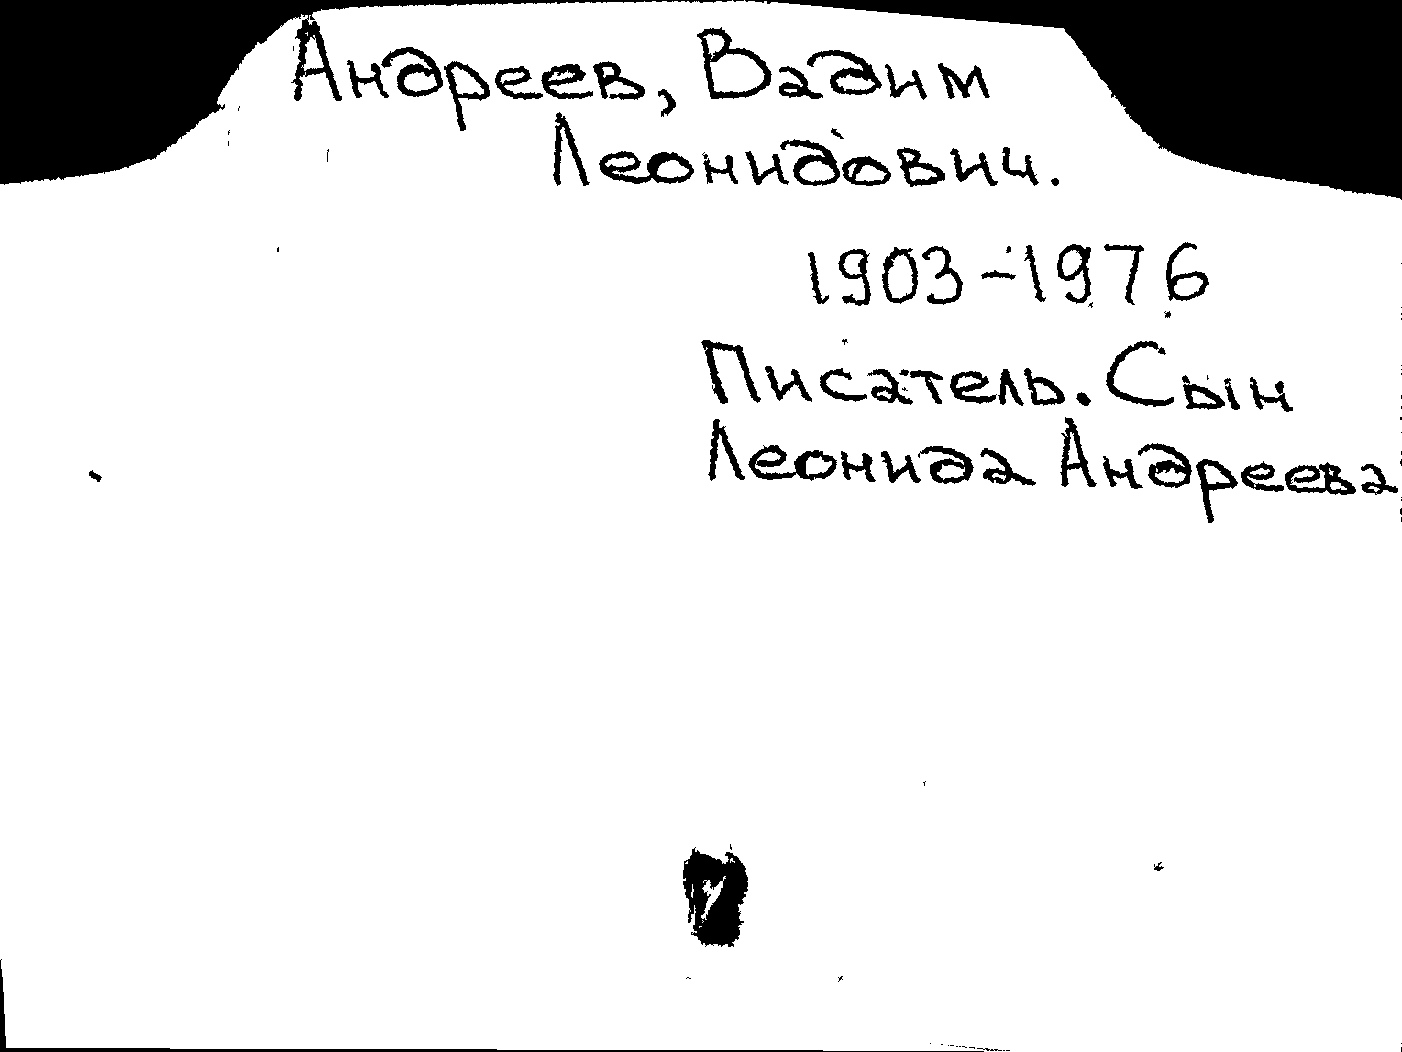 Андреев, Вадим
Леонидович.
1903-1976
Писатель. Сын
Леонида Андреева